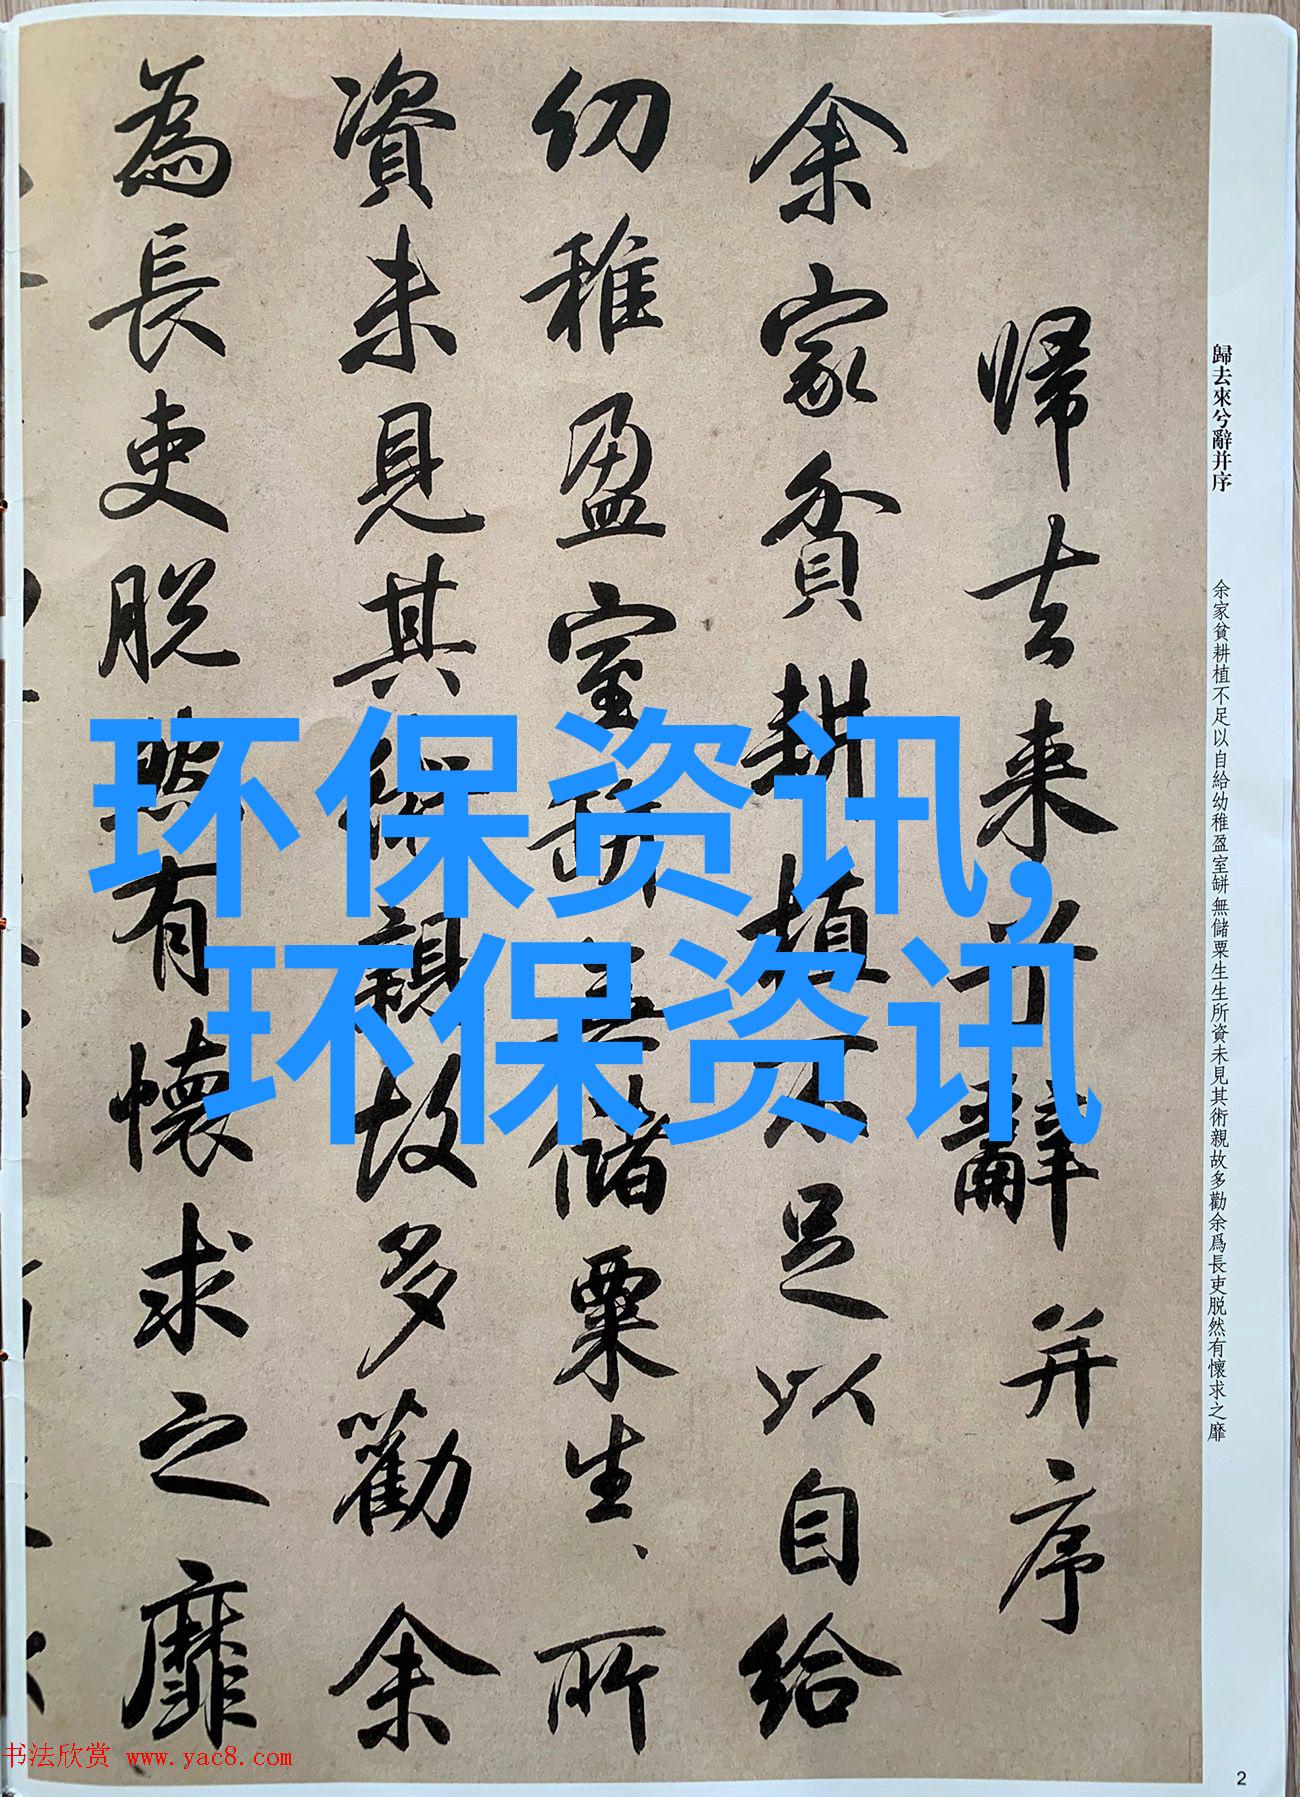 歸去來兮辭并序
余家貧耕植不足以自給幼稚盈室缾無儲粟生生所資未見其術親故多勸余爲長吏脱然有懷求之靡
帰去来兮辭并序
余家貧耕植不足以自給
幼稚盈室缾無儲粟生、所
資未見其術親故多勸余
為長吏脱然有懷求之靡
环保资讯,
环保资讯
书法欣赏 www.yac8.com
2